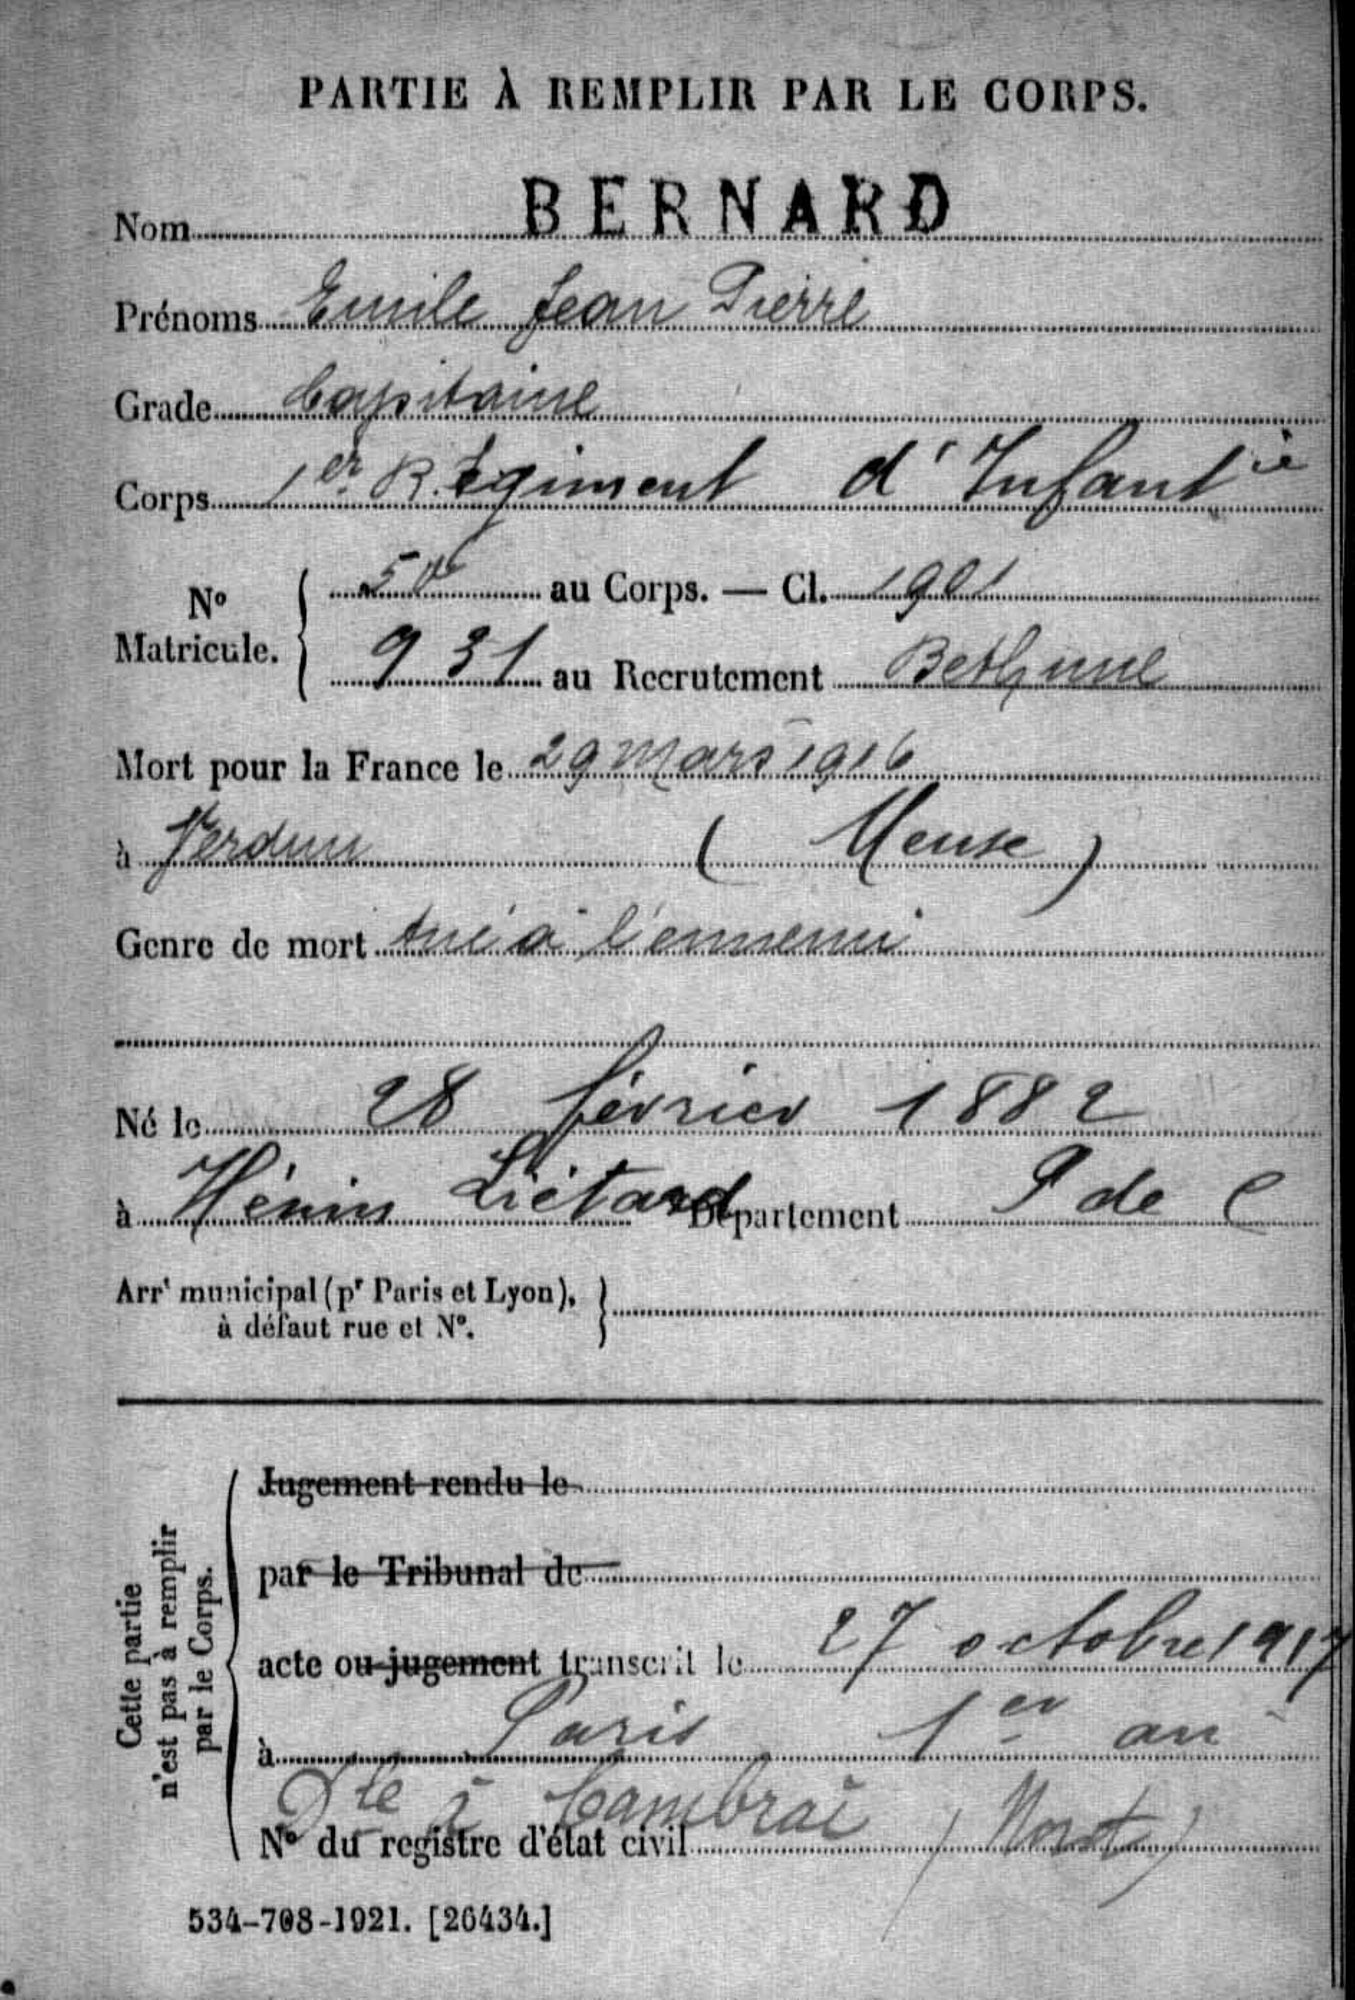 PARTIE À REMPLIR PAR LE CORPS.
Nom BERNARD
Prénoms Emile Jean Pierre
Grade Capitaine
Corps 1er R. Régiment d'Infantie
N° Matricule. { 50 au Corps. — Cl. 1901
931 au Recrutement Bethune
Mort pour la France le 29 mars 1916
à Verdun ( Meuse )
Genre de mort tué à l'ennemi
Né le 28 février 1882
à Hénin Liétard Département P de C
Arrt municipal (pr Paris et Lyon), à défaut rue et N°.
Cette partie n'est pas à remplir par le Corps.
Jugement rendu le
par le Tribunal de
acte ou jugement transcrit le 27 octobre 1917
à Paris 1er an
Dle à Cambrai (Nord)
N° du registre d'état civil
534-708-1921. [26434.]